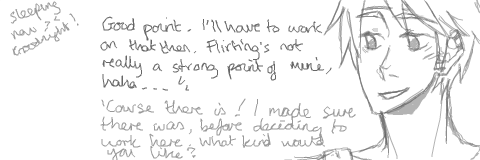 sleeping
now ? :
Goodnight !
Good point. I'll have to work
on that then. Flirting's not
really a strong point of mine,
haha . . . . ' ,
'Course there is ! I made sure
there was, before deciding to
work here. What kind would
you like ?